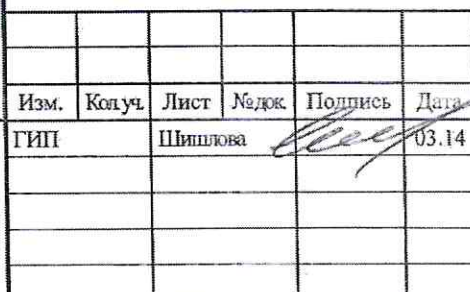 Изм. Кол.уч. Лист №док. Подпись Дата
ГИП Шишлова 03.14